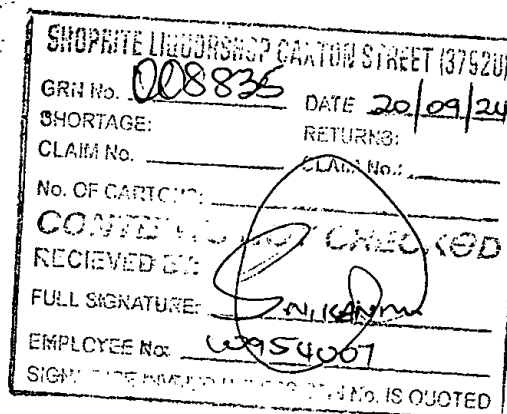 SHOPRITE LIQUORSHOP CAXTON STREET (37520)
GRN No. 008835 DATE 20/09/24
SHORTAGE: RETURNS:
CLAIM No. CLAIM No.:
No. OF CARTONS:
CONTENTS NOT CHECKED
RECIEVED BY:
FULL SIGNATURE:
EMPLOYEE No: W954007
No. IS QUOTED